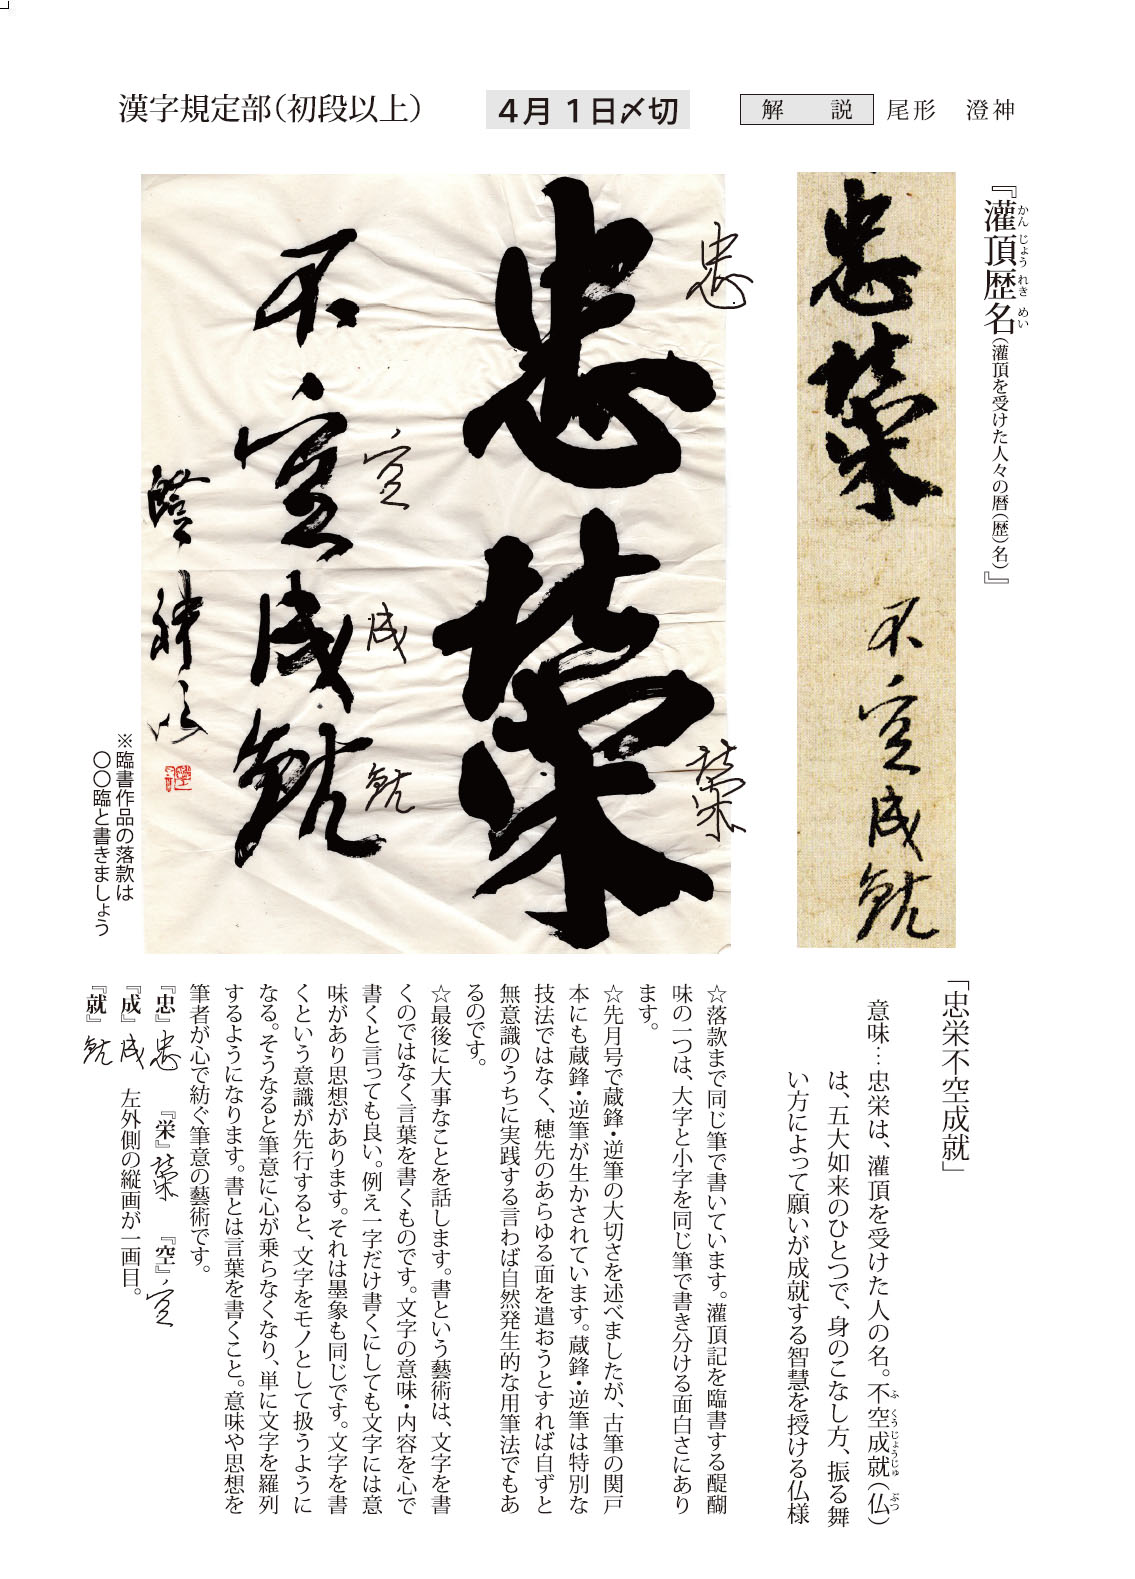 漢字規定部（初段以上）
4月1日〆切
解　説
尾形　澄神
『灌頂歴名（灌頂を受けた人々の暦（歴）名）』
かんじょうれきめい
忠榮
不空成就
忠
榮
忠榮
空
成
就
不空成就
澄神臨
※臨書作品の落款は
〇〇臨と書きましょう
「忠栄不空成就」
意味…忠栄は、灌頂を受けた人の名。不空成就（仏）
ふくうじょうじゅ　ぶつ
は、五大如来のひとつで、身のこなし方、振る舞
い方によって願いが成就する智慧を授ける仏様
☆落款まで同じ筆で書いています。灌頂記を臨書する醍醐
味の一つは、大字と小字を同じ筆で書き分ける面白さにあり
ます。
☆先月号で蔵鋒・逆筆の大切さを述べましたが、古筆の関戸
本にも蔵鋒・逆筆が生かされています。蔵鋒・逆筆は特別な
技法ではなく、穂先のあらゆる面を遣おうとすれば自ずと
無意識のうちに実践する言わば自然発生的な用筆法でもあ
るのです。
☆最後に大事なことを話します。書という藝術は、文字を書
くのではなく言葉を書くものです。文字の意味・内容を心で
書くと言っても良い。例え一字だけ書くにしても文字には意
味があり思想があります。それは墨象も同じです。文字を書
くという意識が先行すると、文字をモノとして扱うように
なる。そうなると筆意に心が乗らなくなり、単に文字を羅列
するようになります。書とは言葉を書くこと。意味や思想を
筆者が心で紡ぐ筆意の藝術です。
『忠』忠　『栄』榮　『空』空
『成』成　左外側の縦画が一画目。
『就』就